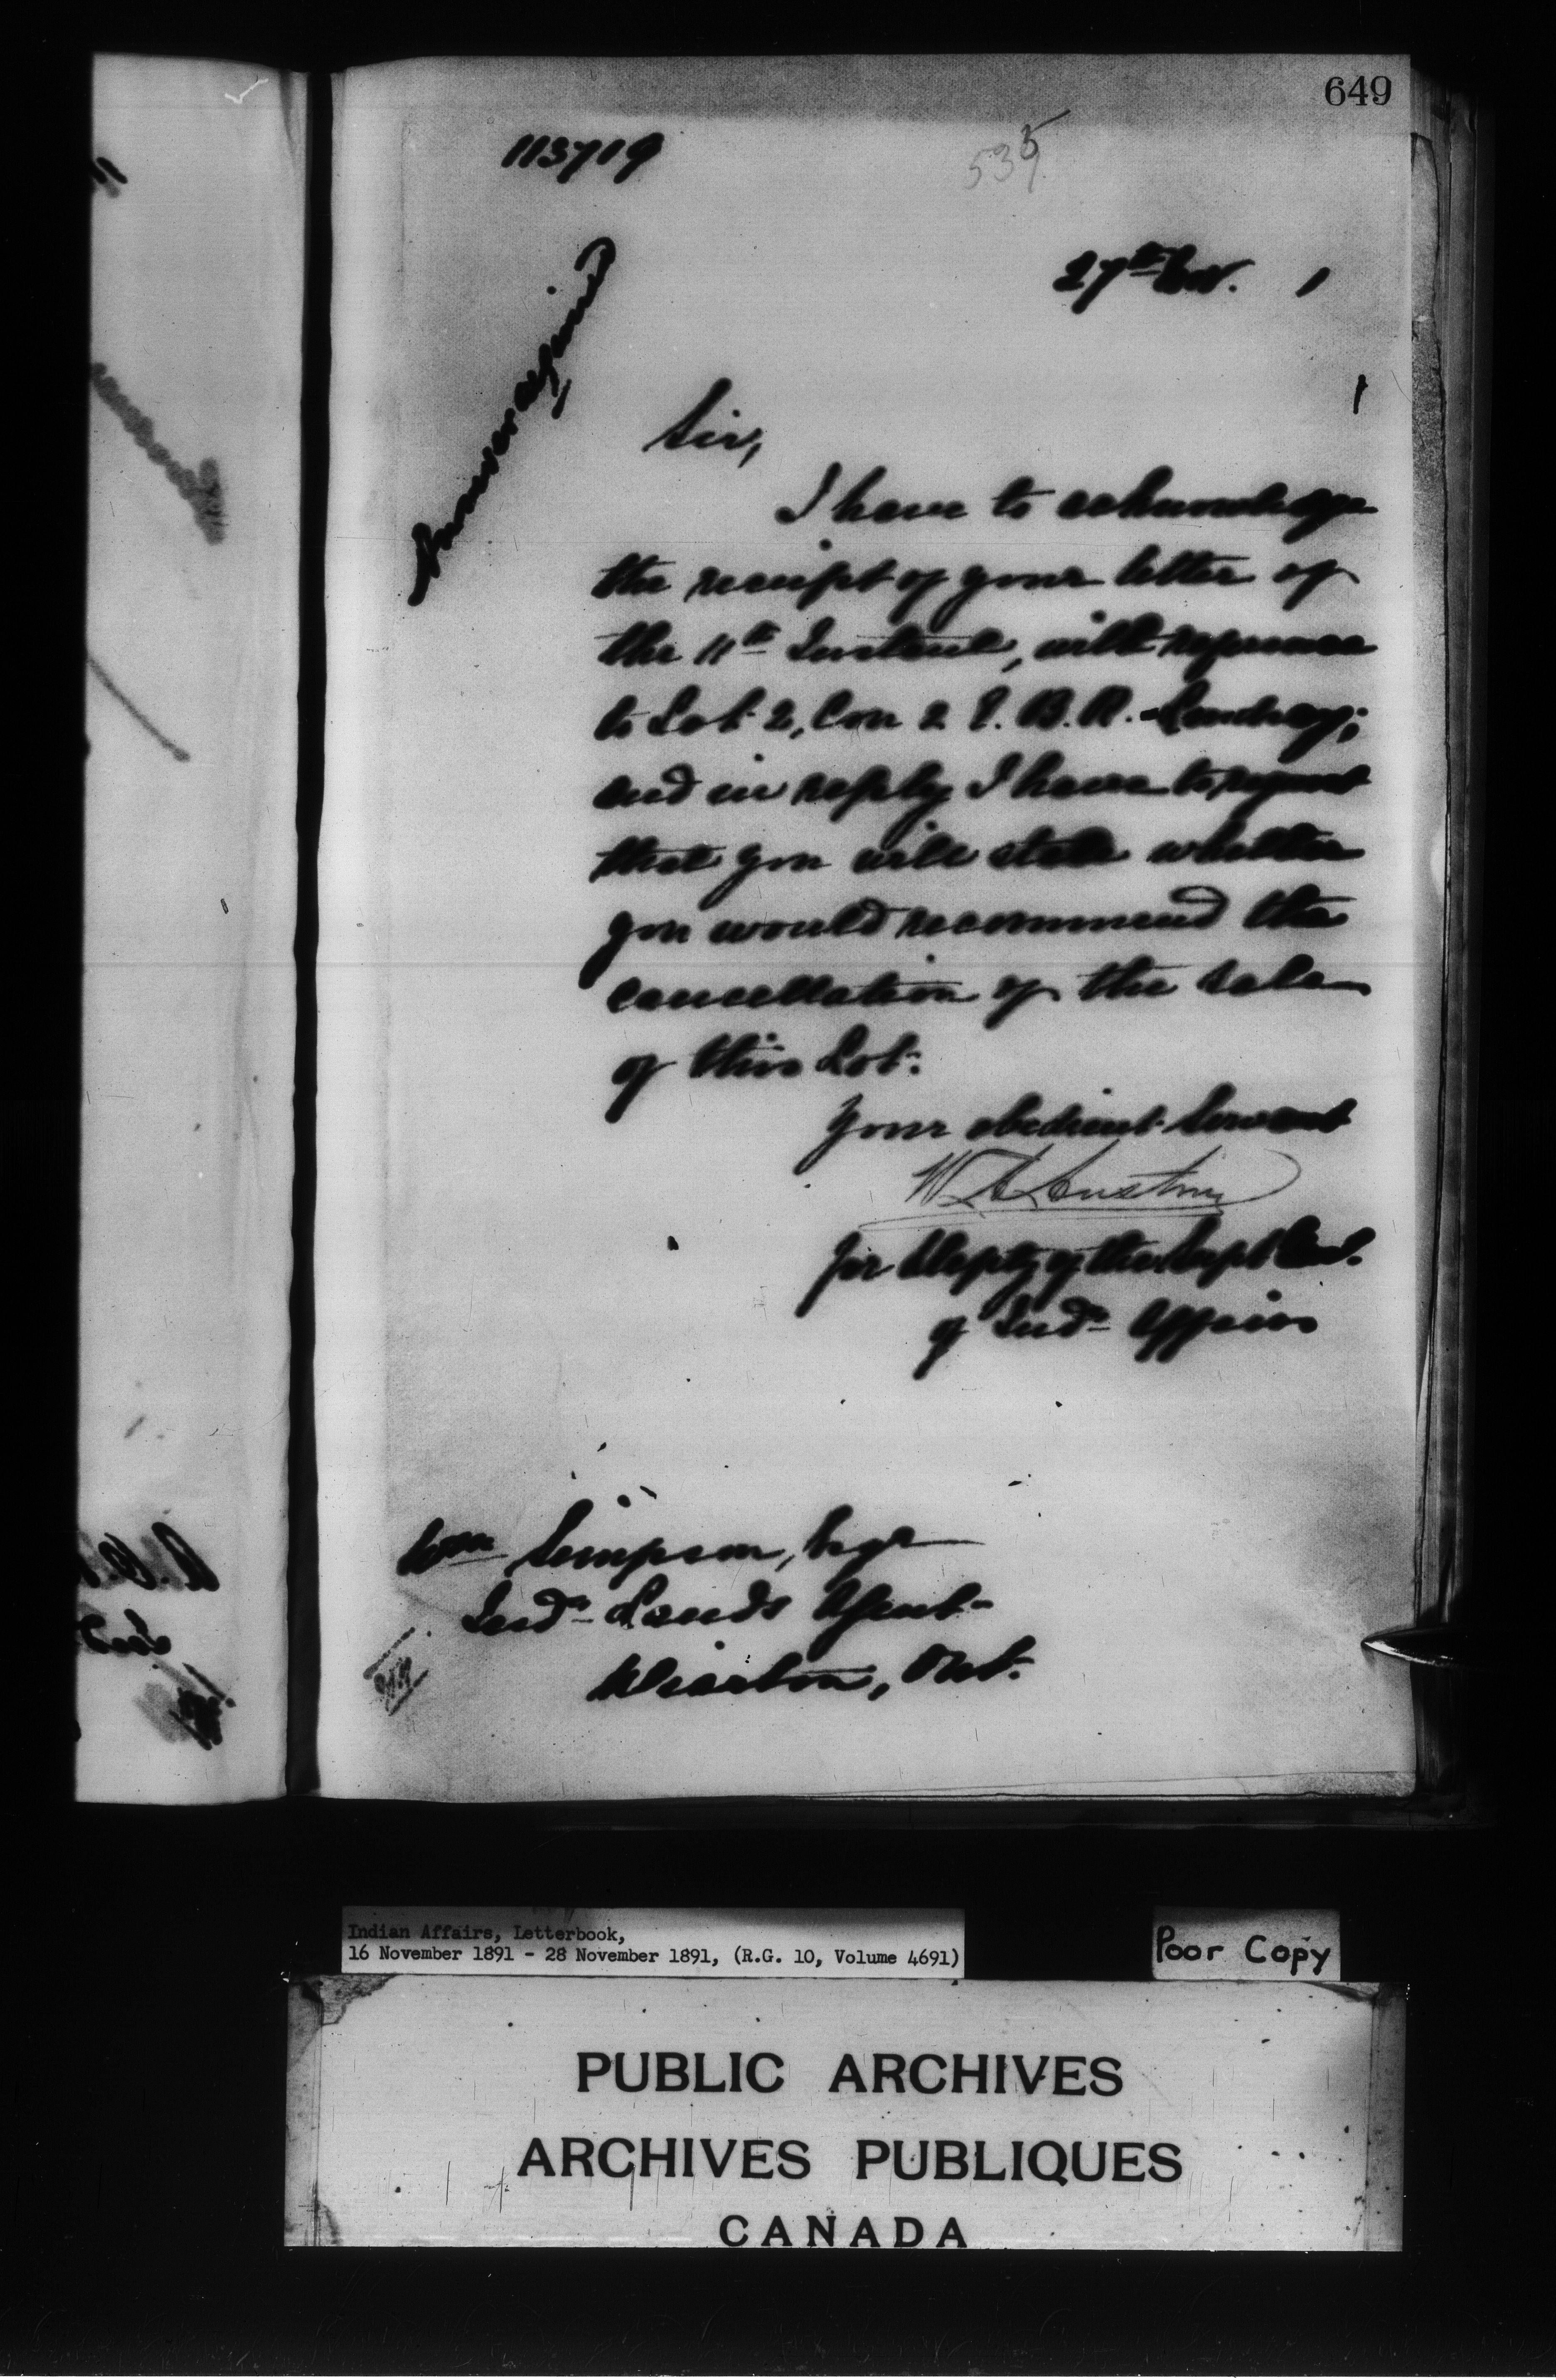 649
113719
535
27th Nov. 1
Answer required
Sir,
I have to acknowledge
the receipt of your letter of
the 11th Instant, with reference
to Lot 2, Con 2 E. B. R. Lindsay;
and in reply I have to request
that you will state whether
you would recommend the
cancellation of the sale
of this Lot.
Your obedient Servant
W A Austin
for Depty of the Supt Genl.
of Indn Affairs
Wm Simpson, Esqr
Indn Lands Agent
Wiarton, Ont.
Indian Affairs, Letterbook,
16 November 1891 - 28 November 1891, (R.G. 10, Volume 4691)
Poor Copy
PUBLIC ARCHIVES
ARCHIVES PUBLIQUES
CANADA